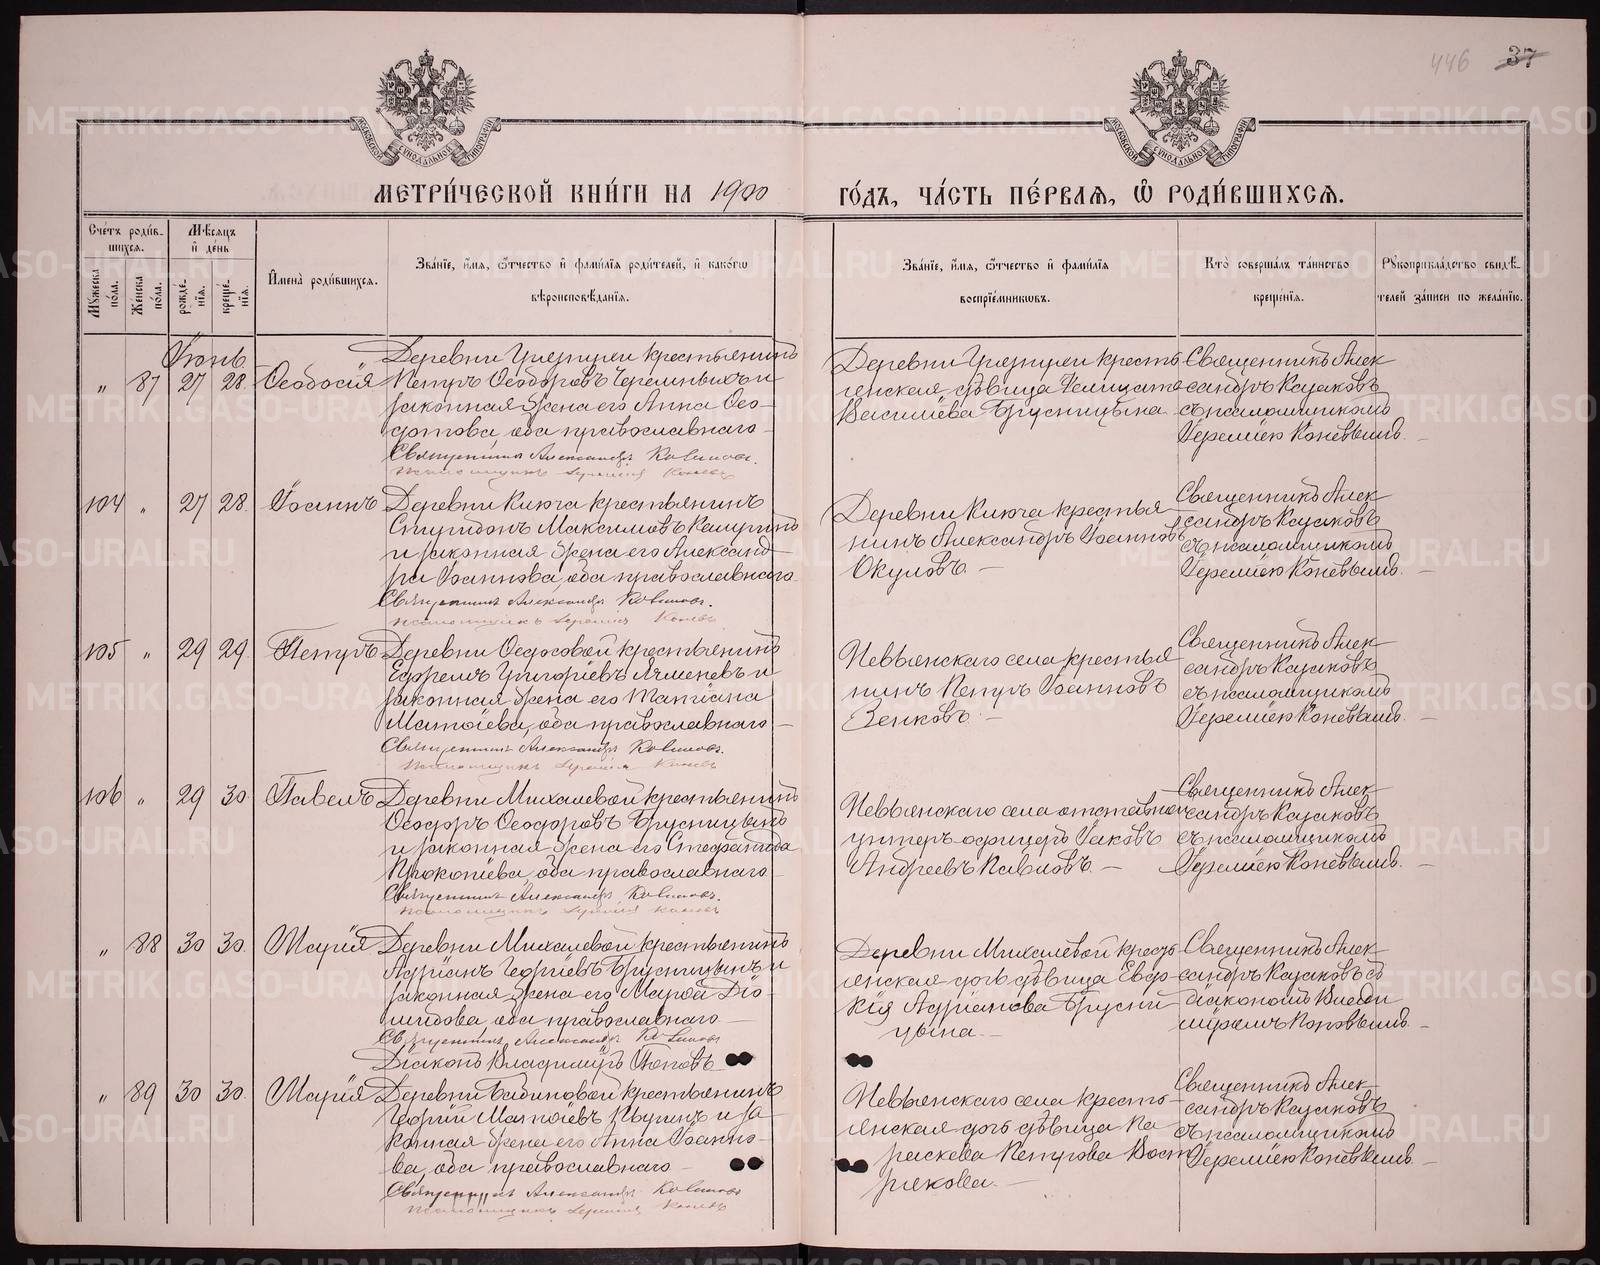 446 37
МЕТРИ́ЧЕСКОЙ КНИ́ГИ НА 1900
ГО́ДЪ, ЧА́СТЬ ПЕ́РВАѦ, Ѡ҆ РОДИ́ВШИХСѦ.
Сче́тъ роди́вшихсѧ.
Мꙋ́жеска по́ла.
Же́нска по́ла.
Мѣ́сяцъ и҆ де́нь
рожде́нїѧ.
креще́нїѧ.
И҆мена̀ роди́вшихсѧ.
Зва́нїе, и҆́мѧ, ѻ҆́тчество и҆ фами́лїѧ роди́телей, и҆ како́гѡ
вѣроисповѣ́данїѧ.
Зва́нїе, и҆́мѧ, ѻ҆́тчество и҆ фами́лїѧ
воспрїе́мниковъ.
Кто̀ соверша́лъ та́инство
креще́нїѧ.
Рꙋкоприкла́дство свидѣ́телей за́писи по жела́нїю.
Іюнь.
" 87 27 28 Ѳеодосія
Деревни
крестьянинъ
Петръ Ѳеодоровъ Черемныхъ и
законная жена его Анна Ѳео-
дотова, оба православнаго
Священникъ Александръ
Псаломщикъ Іеремія Коневъ
Деревни
кресть
янская дѣвица
Васильева Брусницына
Священникъ Алек
сандръ
съ псаломщикомъ
Іереміею Коневымъ.
104 " 27 28 Іоаннъ
Деревни Ключа крестьянинъ
Спиридонъ Максимовъ
и законная жена его Александ
ра Іоаннова, оба православнаго
Священникъ Александръ
Псаломщикъ Іеремія Коневъ
Деревни Ключа крестья
нинъ Александръ Іоанновъ
Окуловъ
Священникъ Алек
сандръ
съ псаломщикомъ
Іереміею Коневымъ.
105 " 29 29 Петръ
Деревни Ѳедосовой крестьянинъ
Ефремъ Григоріевъ Ячменевъ и
законная жена его Татіана
Матѳіева, оба православнаго
Священникъ Александръ
Псаломщикъ Іеремія Коневъ
Невьянскаго села крестья
нинъ Петръ Іоанновъ
Зенковъ
Священникъ Алек
сандръ
съ псаломщикомъ
Іереміею Коневымъ.
106 " 29 30 Павелъ
Деревни Михалевой крестьянинъ
Ѳеодоръ Ѳеодоровъ Брусницынъ
и законная жена его Стефанида
Прокопіева, оба православнаго
Священникъ Александръ
Псаломщикъ Іеремія Коневъ
Невьянскаго села отставной
унтеръ-офицеръ Іаковъ
Андреевъ Павловъ
Священникъ Алек
сандръ
съ псаломщикомъ
Іереміею Коневымъ.
" 88 30 30 Марія
Деревни Михалевой крестьянинъ
Адріанъ Георгіевъ Брусницынъ и
законная жена его Марѳа Діо-
мидова, оба православнаго
Священникъ Александръ
Діаконъ Владиміръ Поповъ
Деревни Михалевой кресть
янская дочь дѣвица Евдо
кія Адріанова Брусни
цына
Священникъ Алек
сандръ
съ
діакономъ Влади
міромъ Поповымъ
" 89 30 30 Марія
Деревни Бабиновой крестьянинъ
Георгій Матѳіевъ
и за
конная жена его Анна Іоанно
ва, оба православнаго
Священникъ Александръ
Псаломщикъ Іеремія Коневъ
Невьянскаго села кресть
янская дочь дѣвица Па
раскева Петрова Вост
рякова
Священникъ Алек
сандръ
съ псаломщикомъ
Іереміею Коневымъ.
METRIKI.GASO-URAL.RU